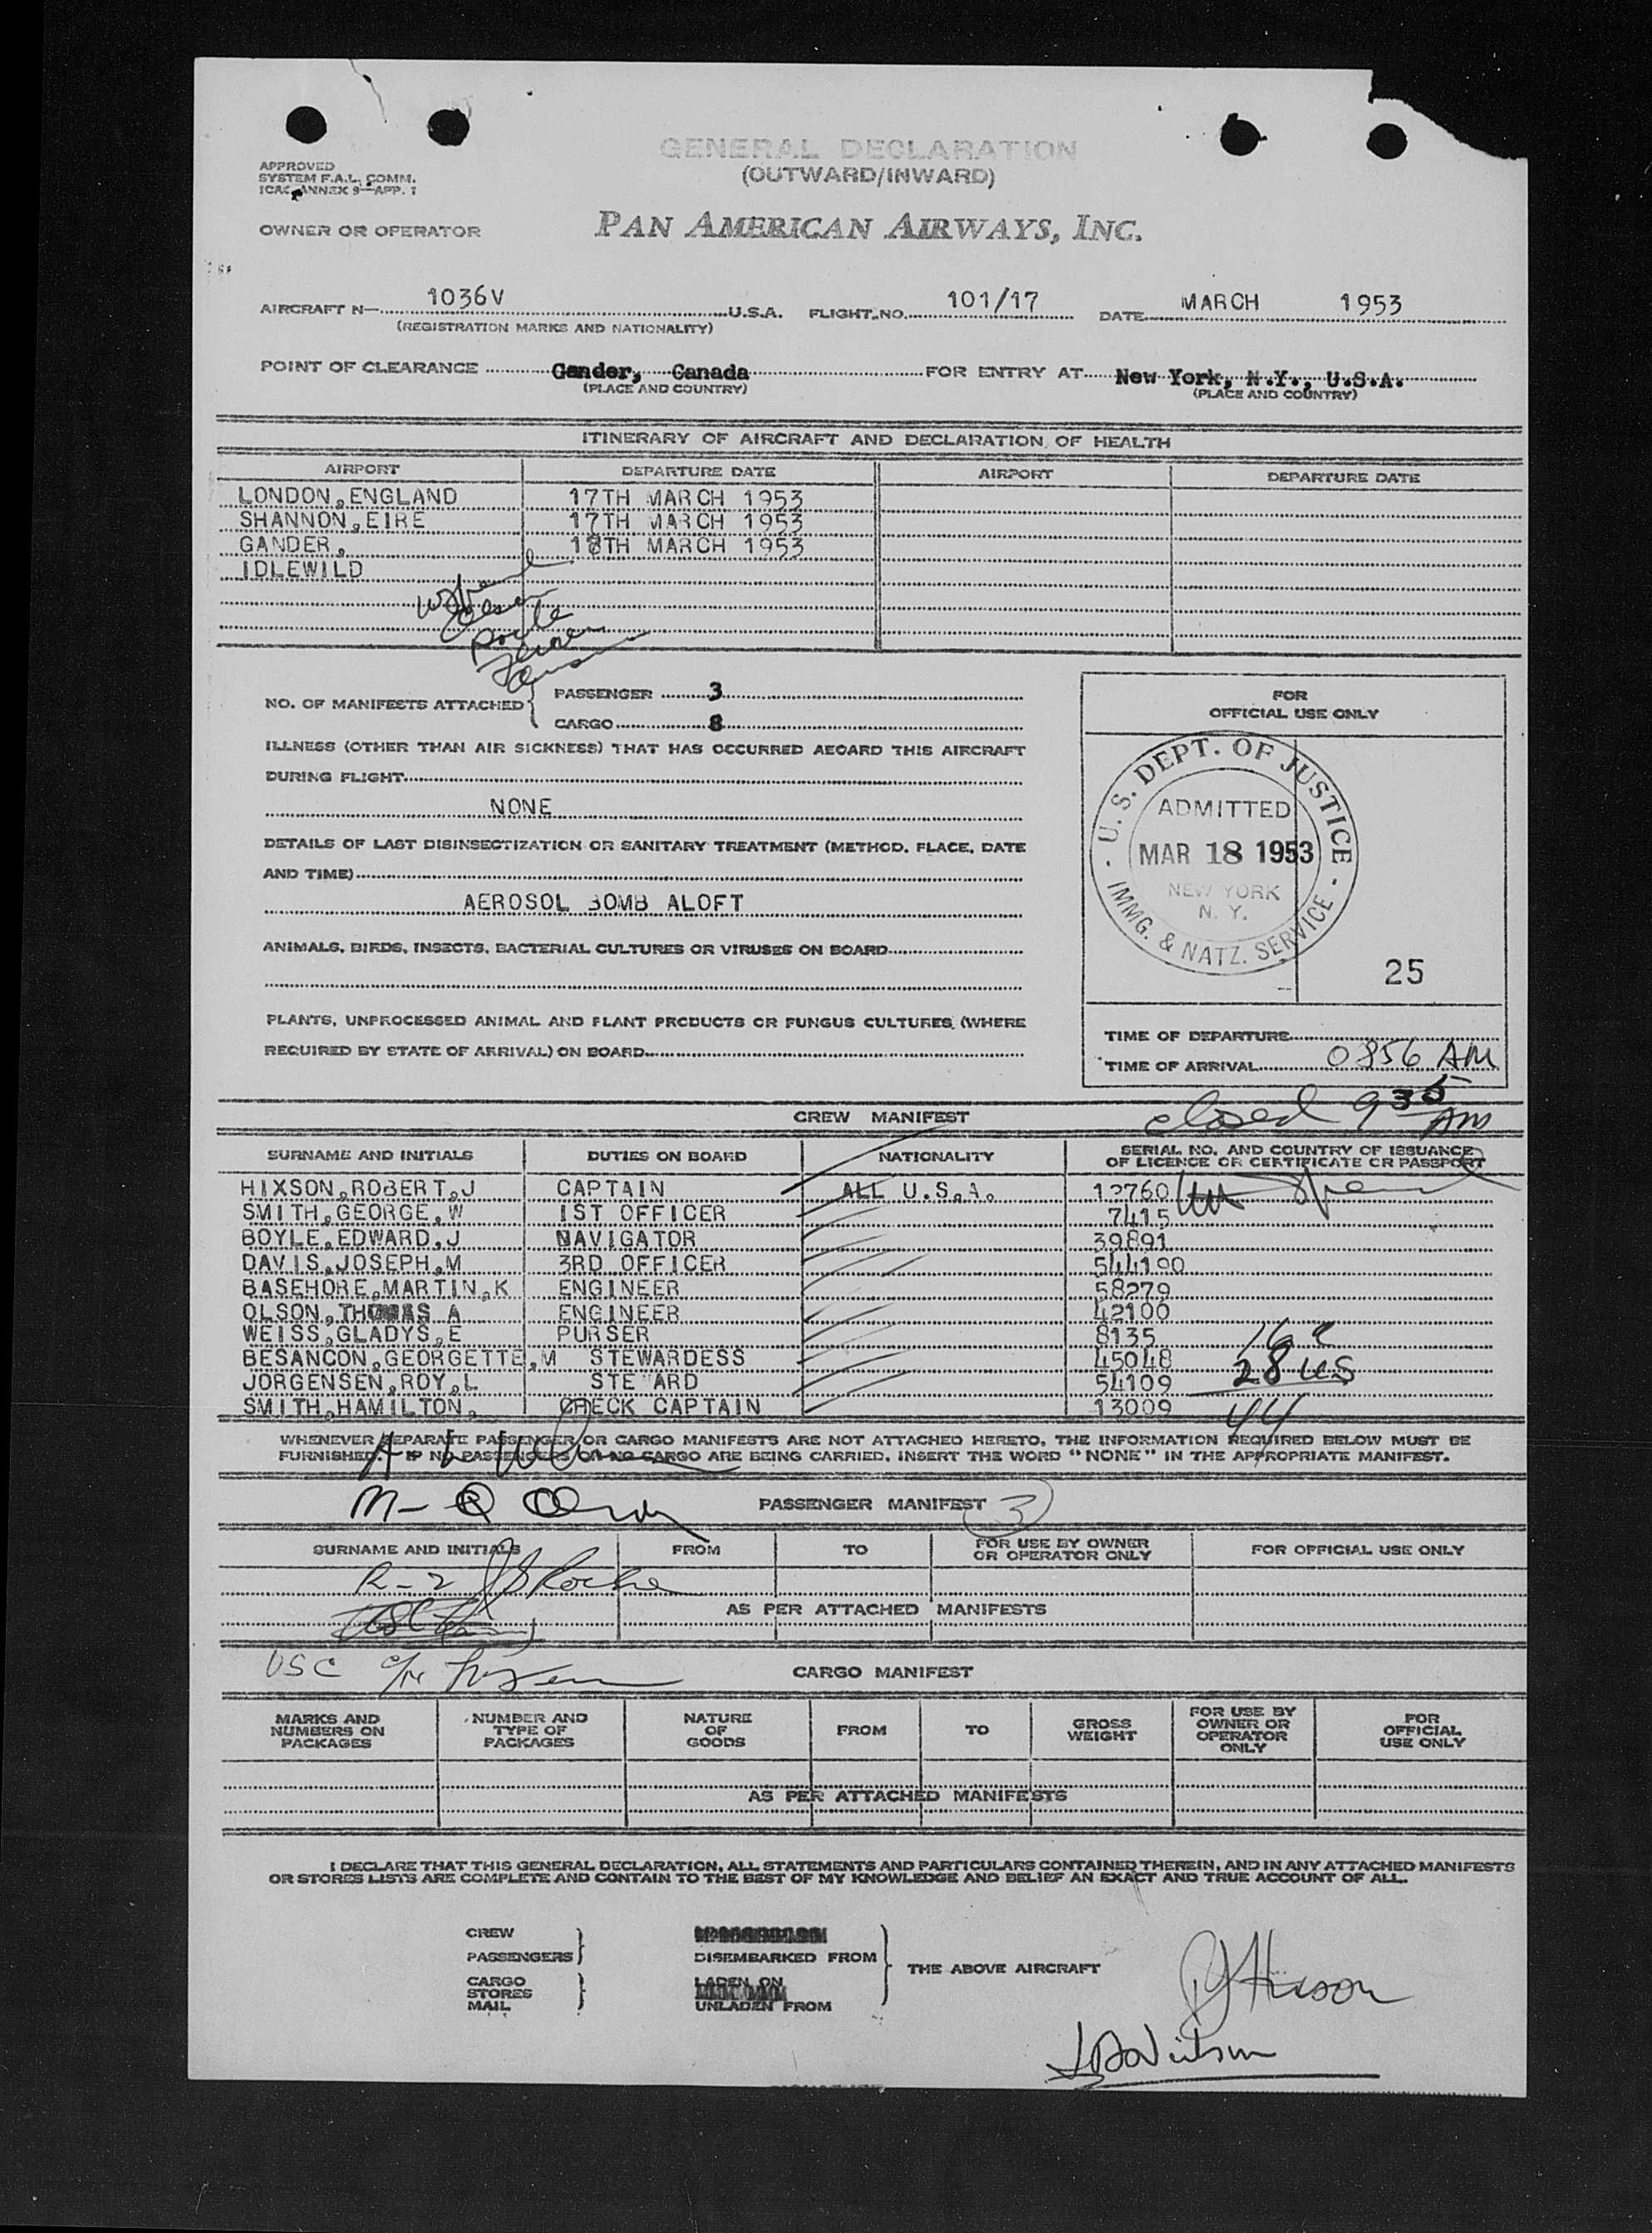 GENERAL DECLARATION
(OUTWARD/INWARD)
APPROVED
SYSTEM F.A.L. COMM.
ICAO ANNEX 9—APP. 1
OWNER OR OPERATOR PAN AMERICAN AIRWAYS, INC.
AIRCRAFT N— 1036V U.S.A. FLIGHT NO. 101/17 DATE MARCH 1953
(REGISTRATION MARKS AND NATIONALITY)
POINT OF CLEARANCE Gander, Canada FOR ENTRY AT New York, N.Y., U.S.A.
(PLACE AND COUNTRY) (PLACE AND COUNTRY)
ITINERARY OF AIRCRAFT AND DECLARATION OF HEALTH
AIRPORT DEPARTURE DATE AIRPORT DEPARTURE DATE
LONDON, ENGLAND 17TH MARCH 1953
SHANNON, EIRE 17TH MARCH 1953
GANDER, 18TH MARCH 1953
IDLEWILD
NO. OF MANIFESTS ATTACHED { PASSENGER 3
CARGO 8
FOR
OFFICIAL USE ONLY
ILLNESS (OTHER THAN AIR SICKNESS) THAT HAS OCCURRED ABOARD THIS AIRCRAFT
DURING FLIGHT
NONE
DETAILS OF LAST DISINSECTIZATION OR SANITARY TREATMENT (METHOD, PLACE, DATE
AND TIME)
AEROSOL BOMB ALOFT
ANIMALS, BIRDS, INSECTS, BACTERIAL CULTURES OR VIRUSES ON BOARD
PLANTS, UNPROCESSED ANIMAL AND PLANT PRODUCTS OR FUNGUS CULTURES (WHERE
REQUIRED BY STATE OF ARRIVAL) ON BOARD
U.S. DEPT. OF JUSTICE
ADMITTED
MAR 18 1953
NEW YORK
N. Y.
IMMG. & NATZ. SERVICE
25
TIME OF DEPARTURE
TIME OF ARRIVAL 0856 AM
closed 935 AM
CREW MANIFEST
SURNAME AND INITIALS DUTIES ON BOARD NATIONALITY SERIAL NO. AND COUNTRY OF ISSUANCE
OF LICENCE OR CERTIFICATE OR PASSPORT
HIXSON, ROBERT, J CAPTAIN ALL U.S.A. 12760
SMITH, GEORGE, W 1ST OFFICER 7415
BOYLE, EDWARD, J NAVIGATOR 39891
DAVIS, JOSEPH, M 3RD OFFICER 544190
BASEHORE, MARTIN, K ENGINEER 58279
OLSON, THOMAS A ENGINEER 42100
WEISS, GLADYS, E PURSER 8135
BESANCON, GEORGETTE, M STEWARDESS 45048
JORGENSEN, ROY, L STE ARD 54109
SMITH, HAMILTON, CHECK CAPTAIN 13009
28 US
44
WHENEVER SEPARATE PASSENGER OR CARGO MANIFESTS ARE NOT ATTACHED HERETO, THE INFORMATION REQUIRED BELOW MUST BE
FURNISHED. IF NO PASSENGERS OR NO CARGO ARE BEING CARRIED, INSERT THE WORD "NONE" IN THE APPROPRIATE MANIFEST.
PASSENGER MANIFEST 3
SURNAME AND INITIALS FROM TO FOR USE BY OWNER
OR OPERATOR ONLY FOR OFFICIAL USE ONLY
R-2
AS PER ATTACHED MANIFESTS
USC
CARGO MANIFEST
MARKS AND
NUMBERS ON
PACKAGES NUMBER AND
TYPE OF
PACKAGES NATURE
OF
GOODS FROM TO GROSS
WEIGHT FOR USE BY
OWNER OR
OPERATOR
ONLY FOR
OFFICIAL
USE ONLY
AS PER ATTACHED MANIFESTS
I DECLARE THAT THIS GENERAL DECLARATION, ALL STATEMENTS AND PARTICULARS CONTAINED THEREIN, AND IN ANY ATTACHED MANIFESTS
OR STORES LISTS ARE COMPLETE AND CONTAIN TO THE BEST OF MY KNOWLEDGE AND BELIEF AN EXACT AND TRUE ACCOUNT OF ALL.
CREW
PASSENGERS } DISEMBARKED FROM
CARGO
STORES
MAIL } LADEN ON
UNLADEN FROM
THE ABOVE AIRCRAFT
RJHixson